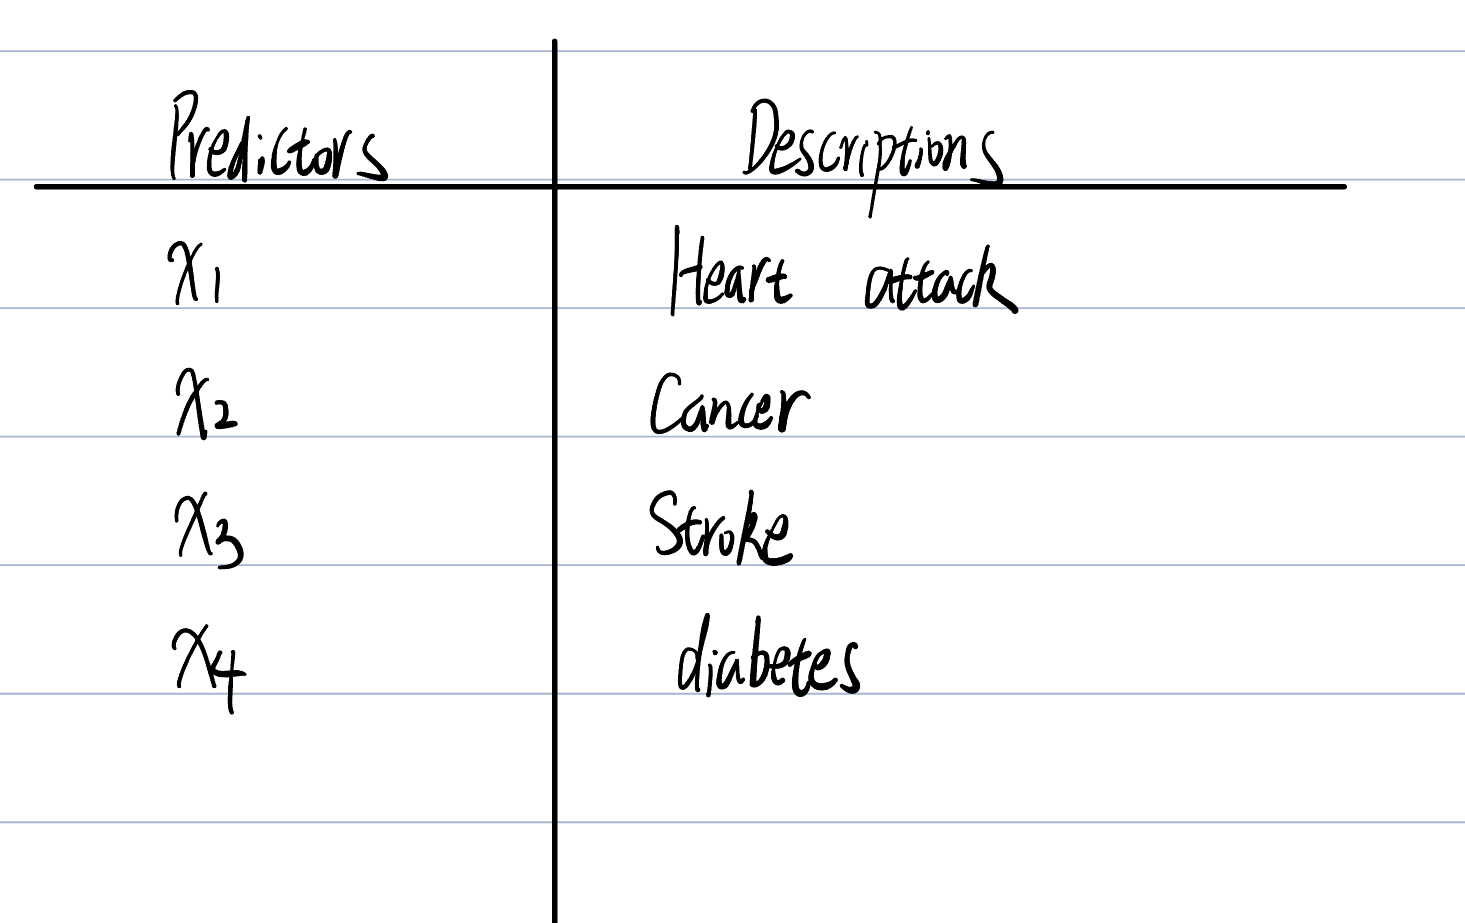 Predictors Descriptions
x1 Heart attack
x2 Cancer
x3 Stroke
x4 diabetes